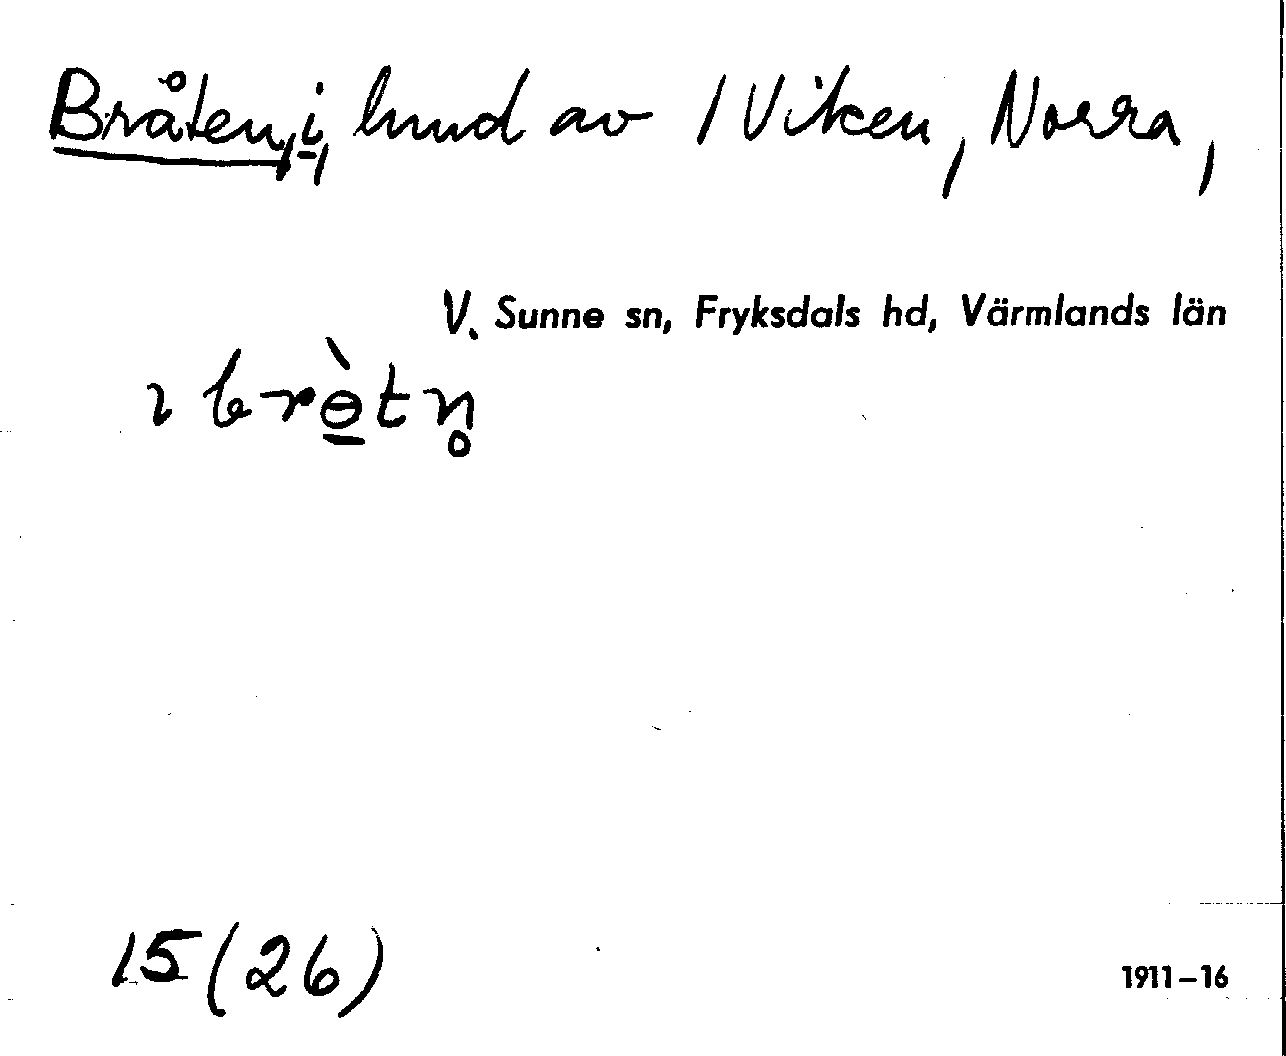 Bråten, i, hmd av 1 Viken, Norra,
V. Sunne sn, Fryksdals hd, Värmlands län
ı brɵ̠̀tn̥
15 (26)
1911–16